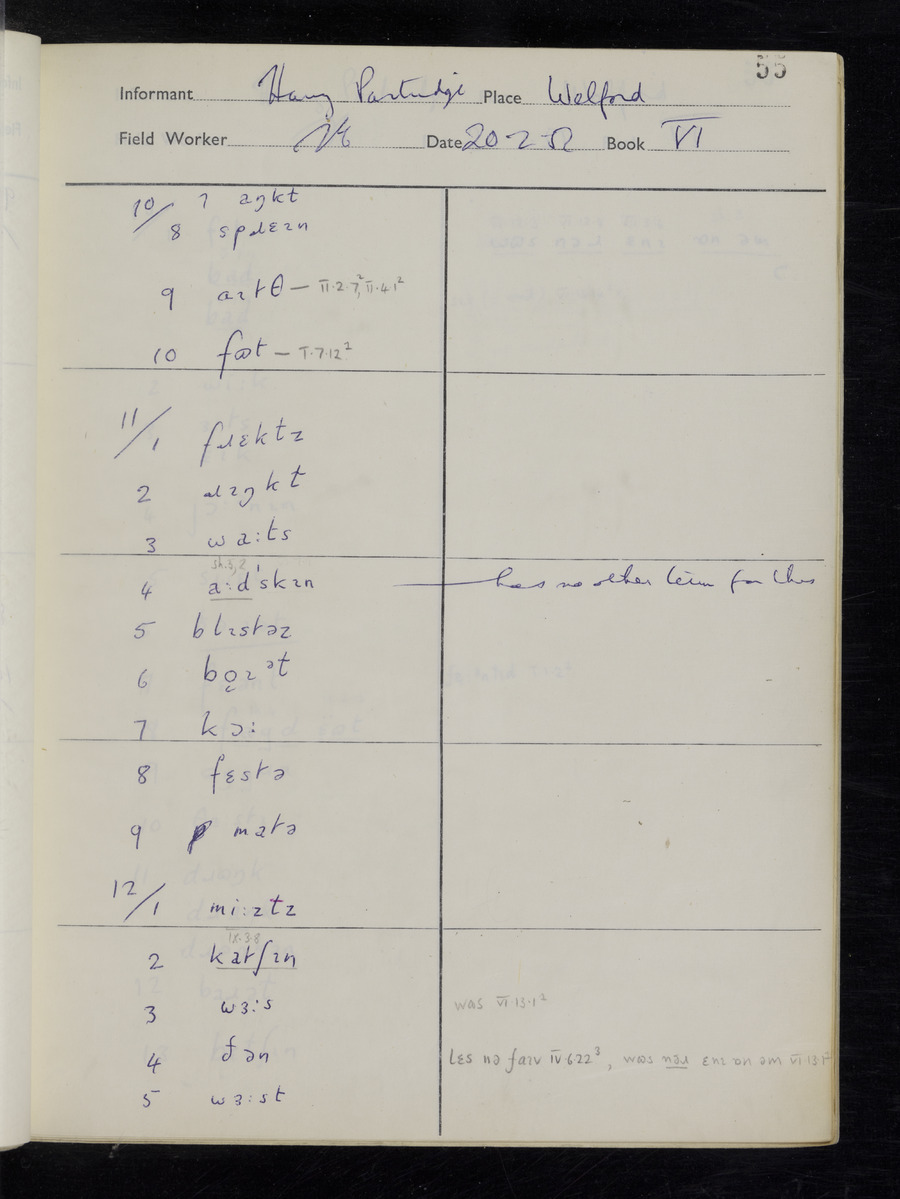 55
Informant Harry Partridge Place Welford
Field Worker Date 20-2-52 Book VI
10/ 7 aŋkt
8 spɹɛɪn
9 aɪtθ — II·2·7², II·4·1²
10 — I·7·12²
11/1 flɛktz
2 ɹɪŋkt
3 wa:ts
4 a:d'skɪn has no other term for this
5 blɪstəz
6
7 kɔ:
8 fɛstə
9 matə
12/1 mi:ztz
IX·3·8
2 katʃɪn
3 wɜ:s was VI 13·1²
4 ðən lɛs nə faɪv IV 6·22³, wɒs nəɹ ɛnɪ ɒn əm VI 13·1²
5 wɜ:st